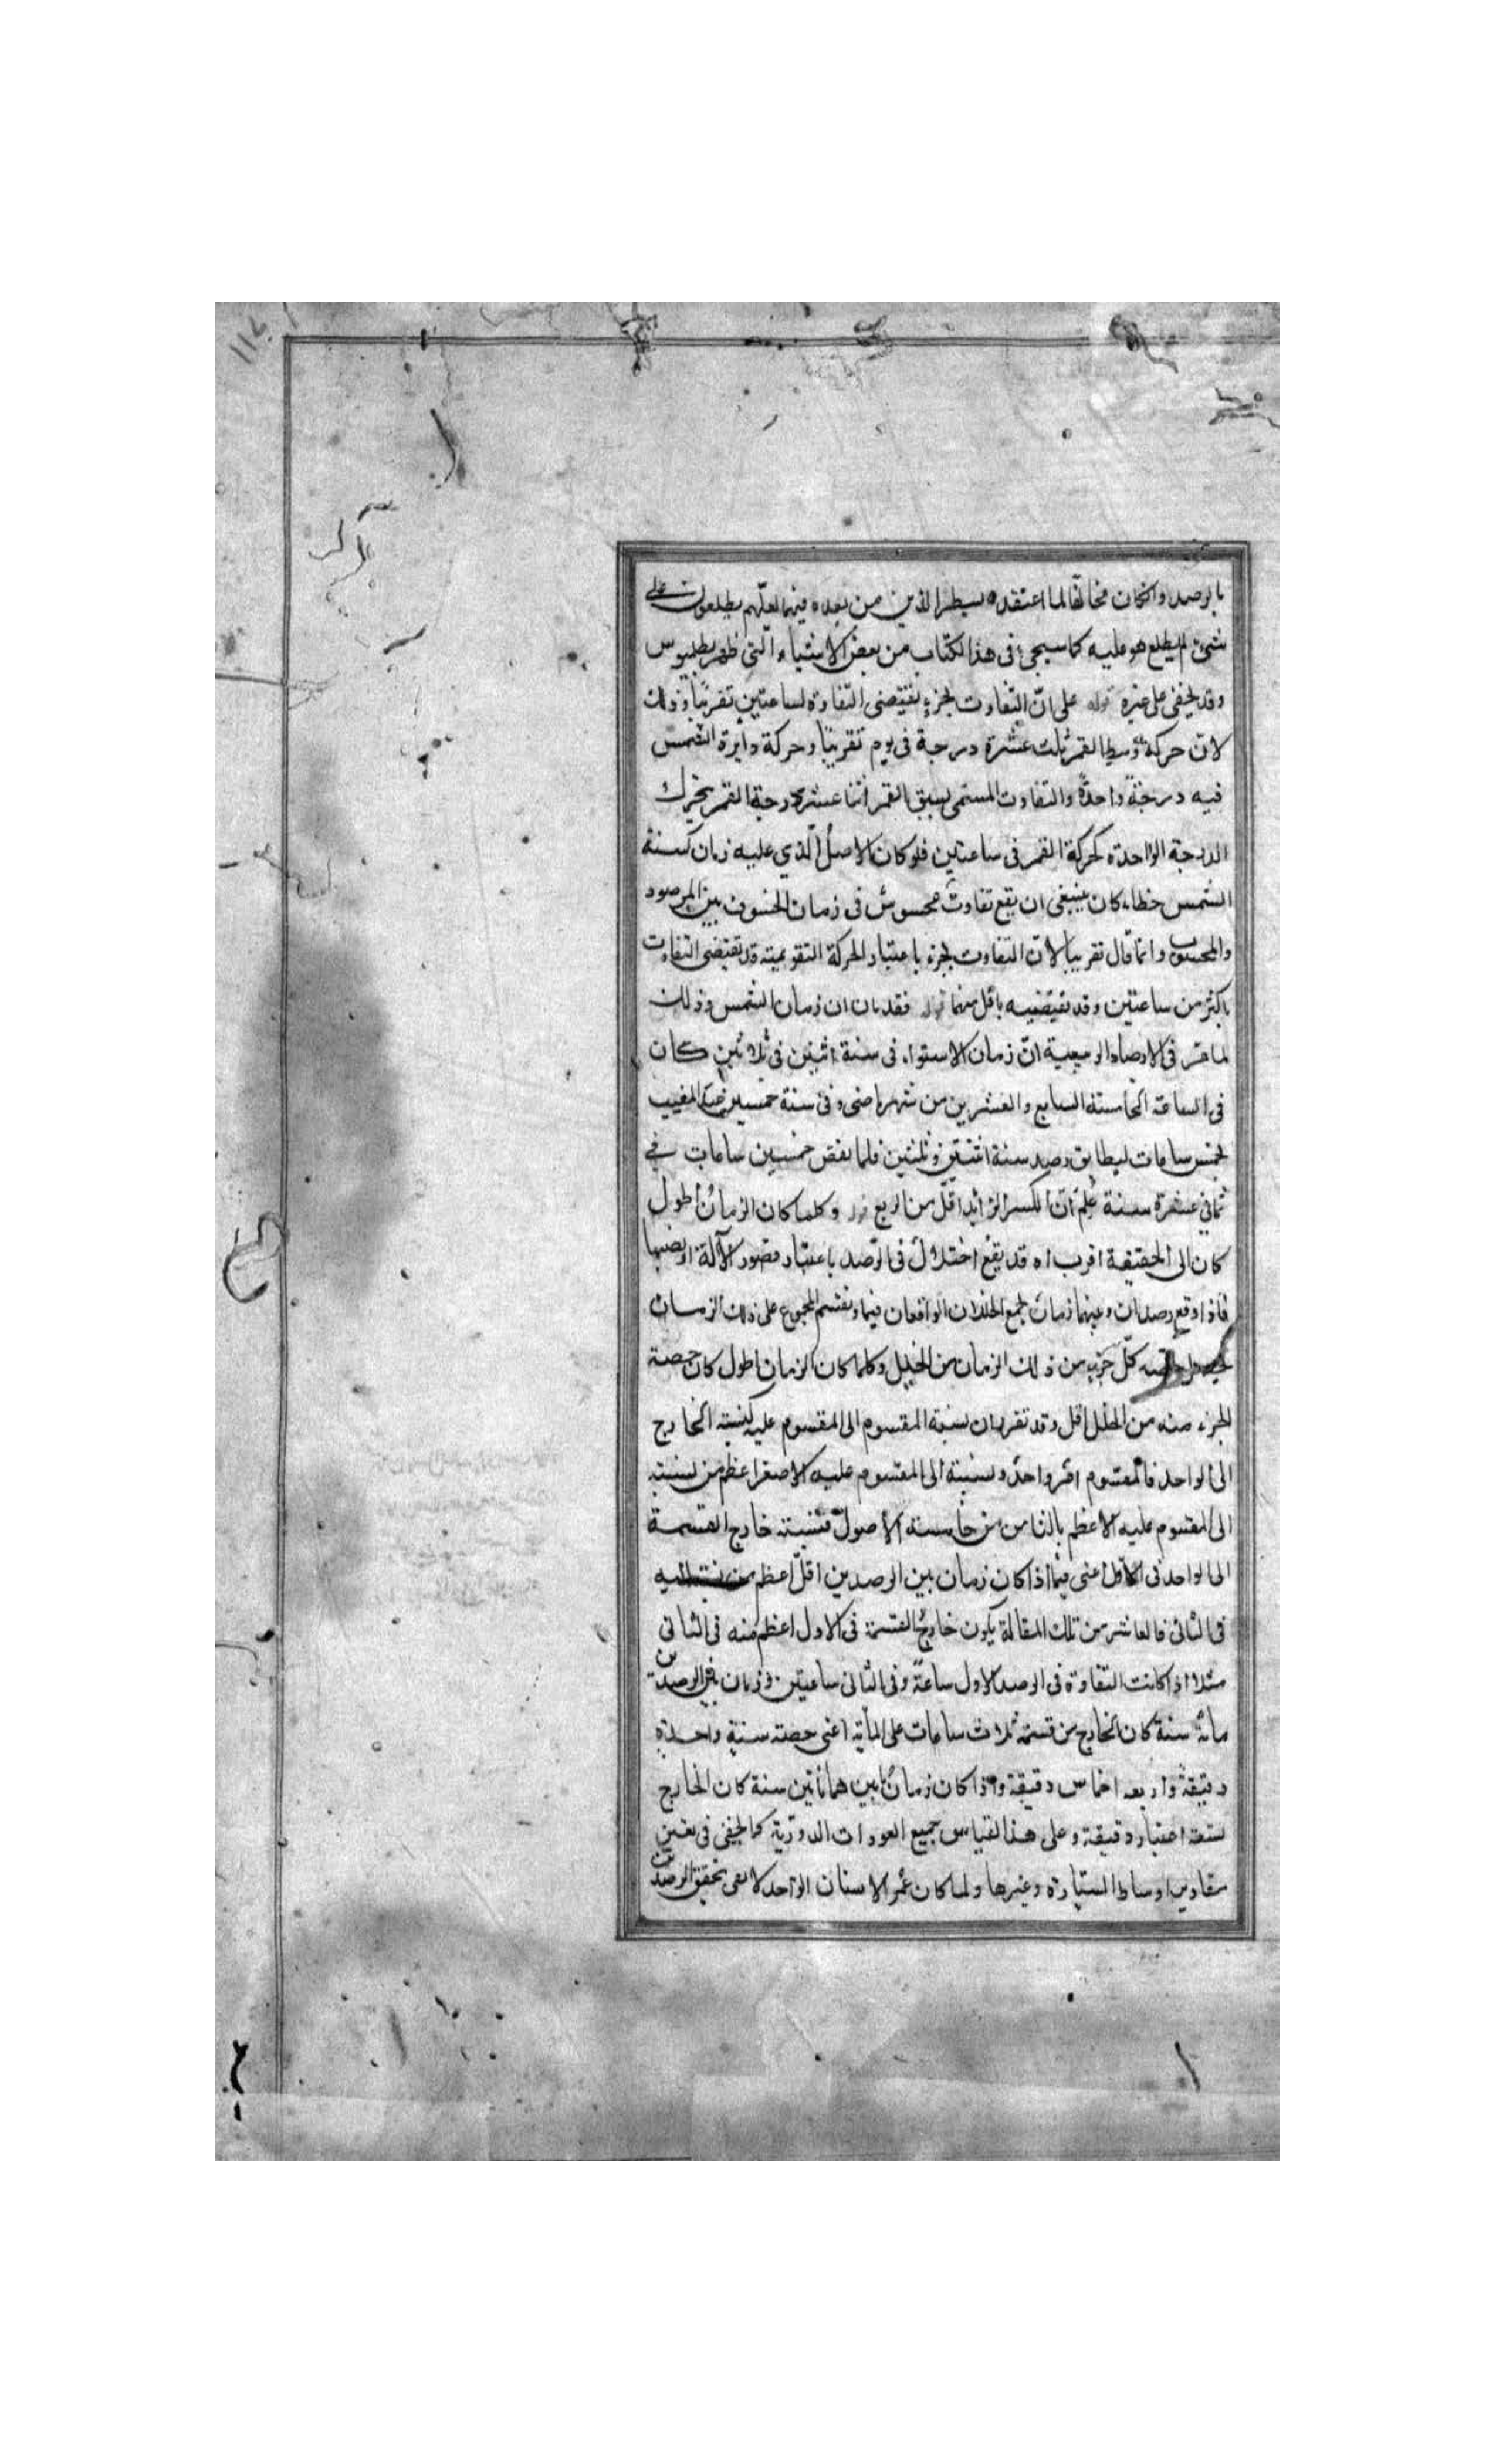 بالرصد وانكان مخالفا لما اعتقده لسيطر الذين من بعده فيما لعلهم يطلعون على
شئ لم يطلع هو عليه كما سيجئ في هذا الكتاب من بعض الاشياء التي ظهر بطلميوس
وقد يخفى على غيره قوله على ان التفاوت بجزء يقتضى التفاوت لساعتين تقريبا وذلك
لان حركة وسط القمر ثلث عشرة درجة في يوم تقريبا وحركة دايرة الشمس
فيه درجة واحدة والتفاوت المسمى بسبق القمر اثنا عشر درجة القمر يتحرك
الدرجة الواحدة كحركة القمر في ساعتين فلو كان الاصل الذي عليه زمان سنة
الشمس خطاء كان ينبغى ان يقع تفاوت محسوس في زمان الخسوف بين المرصود
والمحسوب وانما قال تقريبا لان التفاوت بجزء باعتبار الحركة التقويمية قد تقتضى التفاوت
باكثر من ساعتين وقد تقتضيه باقل منهما قوله فقد بان ان زمان الشمس وذلك
لما مر في الارصاد الربيعية ان زمان الاستواء في سنة اثنين في ثلاثين كان
في الساعة الخامسة السابع والعشرين من شهر ماضى وفي سنة خمسين عند المغيب
بخمس ساعات ليطابق رصد سنة اثنتين وثلثين فلما نقص خمسين ساعات في
ثماني عشرة سنة علم ان الكسر الزايد اقل من الربع قوله وكلما كان الزمان اطول
كان الى الحقيقة اقرب اه قد يقع اختلال في الرصد باعتبار قصور الآلة او نصبها
فاذا وقع رصدان وبينهما زمان يجمع الخللان الواقعان فيهما ونقسم المجموع على ذلك الزمان
كل جزء من ذلك الزمان من الخلل وكلما كان الزمان اطول كان حصة
الجزء منه من الخلل اقل وقد تقرر ان نسبة المقسوم الى المقسوم عليه كنسبة الخارج
الى الواحد فالمقسوم امر واحد ونسبته الى المقسوم عليه الاصغر اعظم من نسبته
الى المقسوم عليه الاعظم بالثامن من خامسة الاصول فنسبة خارج القسمة
الى الواحد في الاول اعنى فيما اذا كان زمان بين الرصدين اقل اعظم من نسبته اليه
في الثاني فالعاشر من تلك المقالة يكون خارج القسمة في الاول اعظم منه في الثاني
مثلا اذا كانت التفاوة في الرصد الاول ساعة وفي الثاني ساعتين وزمان بين الرصدين
مائة سنة كان الخارج من قسمة ثلاث ساعات على المأية اعنى حصة سنة واحدة
دقيقة واربعة اخماس دقيقة واذا كان زمان بين هما مأتين سنة كان الخارج
تسعة اعشار دقيقة وعلى هذا القياس جميع العودات الدورية كما يخفى في تعيين
مقادير اوساط السيارة وغيرها ولما كان عمر الانسان الواحد لا يفى بتحقق الرصدين